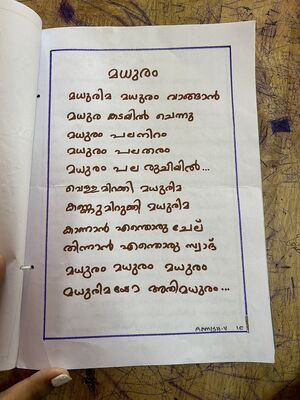 മധുരം
മധുരിമ മധുരം വാങ്ങാൻ
മധുര കടയിൽ ചെന്നു
മധുരം പലനിറം
മധുരം പലതരം
മധുരം പല രുചിയിൽ...
വെള്ളമിറക്കി മധുരിമ
കണ്ണുമിറുക്കി മധുരിമ
കാണാൻ എന്തൊരു ചേല്
തിന്നാൻ എന്തൊരു സ്വാദ്
മധുരം മധുരം മധുരം
മധുരിമ അതിമധുരം...